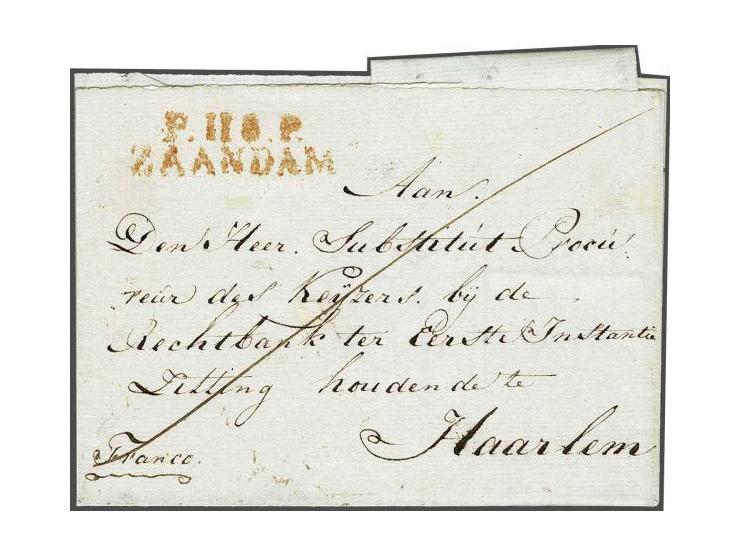 P.118.P.
ZAANDAM
Aan.
Den Heer. Substitút Procú:
reúr des Keÿzers. bij de
Rechtbank ter Eerste Instantie
Zitting houdende te
Haarlem
Franco.